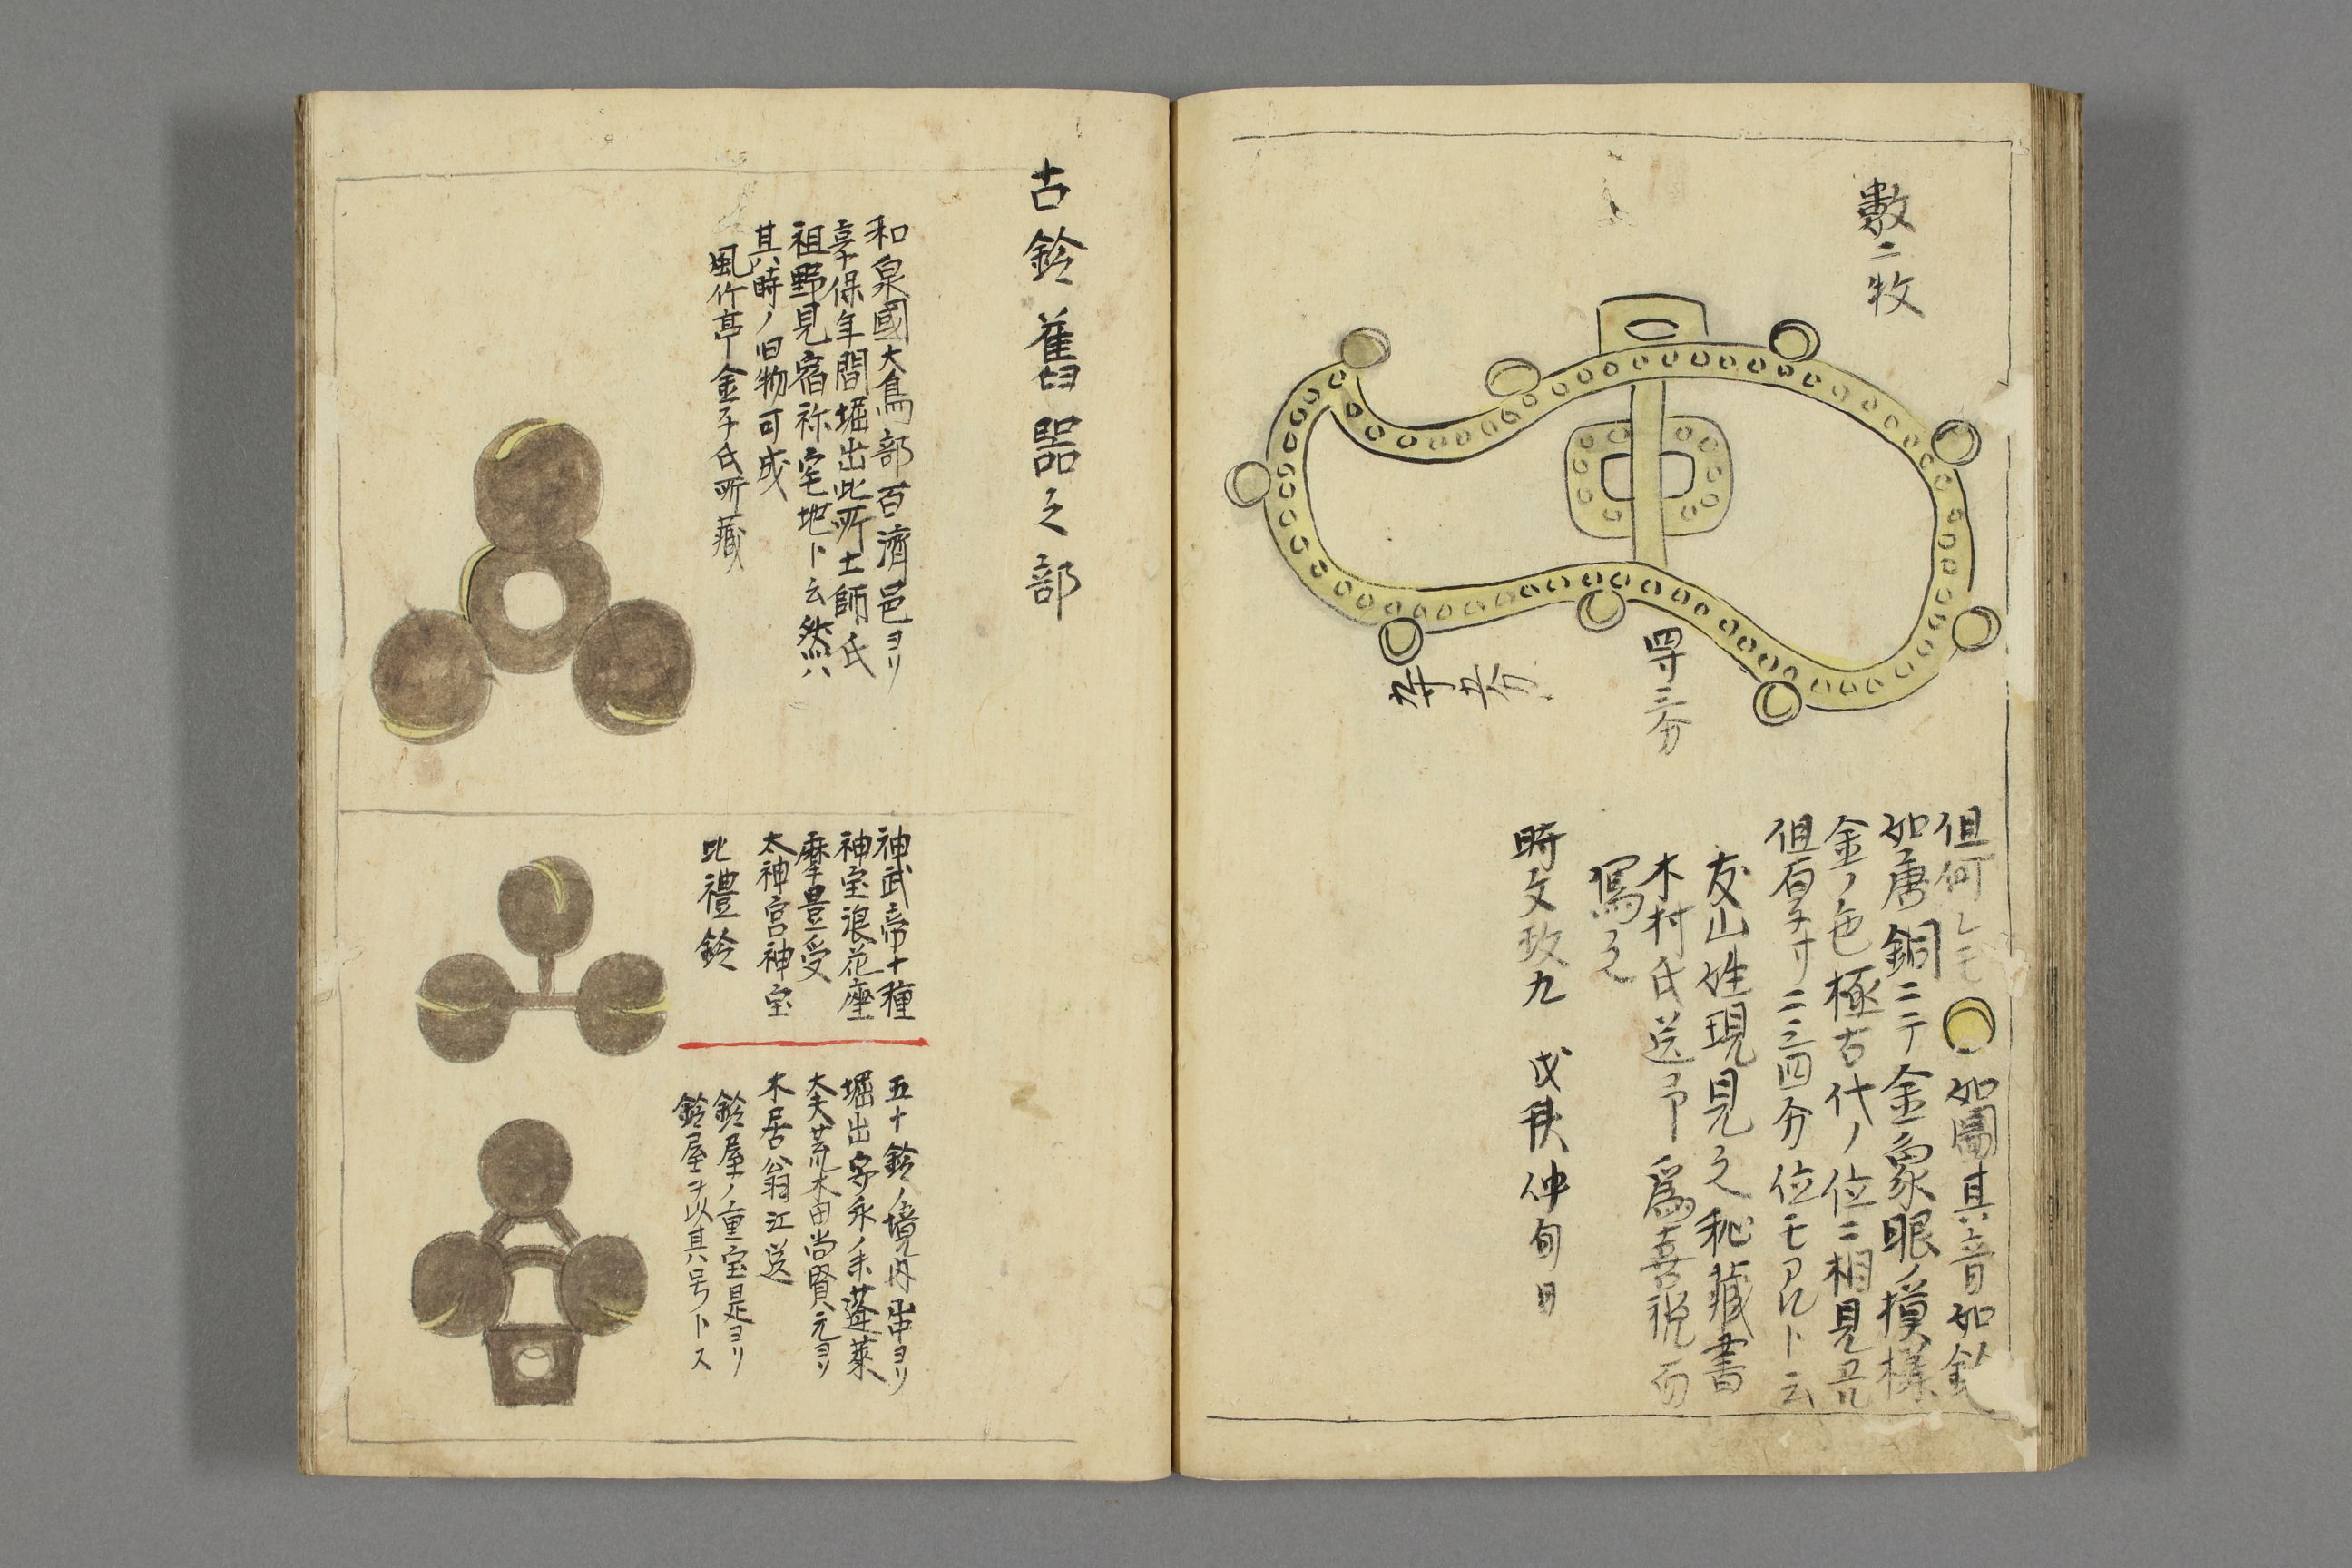 數二牧
四寸三分
九寸五分
但何レモ 如圖其音如鈴
如唐銅ニテ金象眼ノ模様
金ノ色極古代ノ位ニ相見ヱ
但百子寸二三四分位モアルト云
友山姓現見之秘藏書
木村氏送予爲喜祝而
寫之
時文政九 戌秩仲旬日
古鈴舊噐之部
和泉國大鳥部百濟邑ヨリ
享保年間堀出此所土師氏
祖野見宿祢宅地ト云然ハ
其時ノ旧物可成
風竹亭金子氏所藏
神武帝十種
神宝浪花座
摩豊受
太神宮神宝
比禮鈴
五十鈴ノ境内畄中ヨリ
堀出安永ノ末蓬萊
大夫荒木田尚賢元ヨリ
木居翁江送
鈴屋ノ重宝是ヨリ
鈴屋ヲ以其号トス